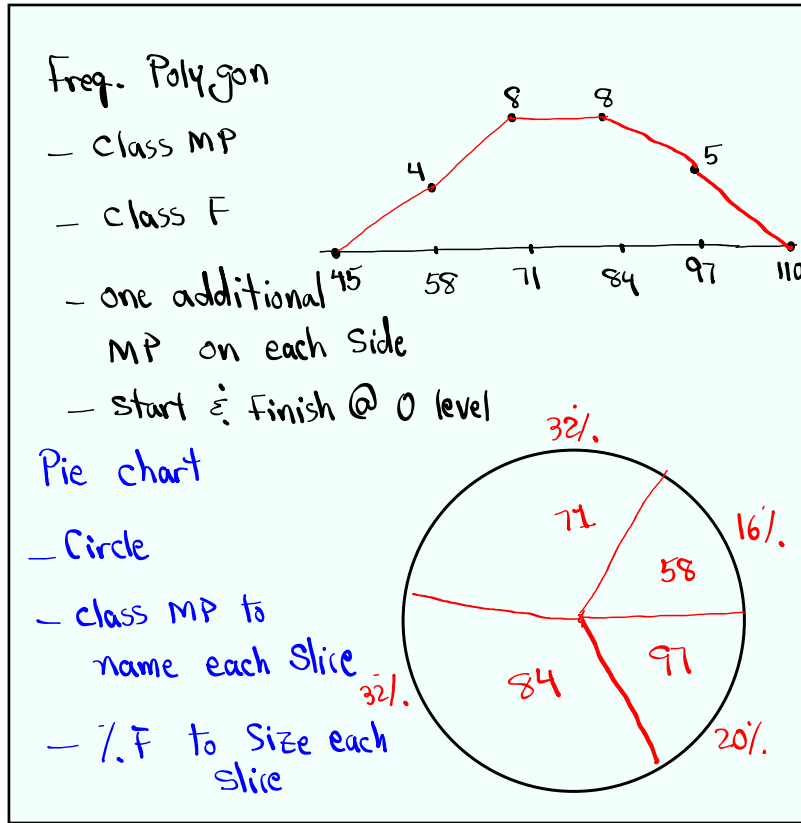 Freq. Polygon
— Class MP
— Class F
— One additional
MP on each Side
— Start & Finish @ 0 level
4
8
8
5
45 58 71 84 97 110
Pie chart
— Circle
— Class MP to
name each Slice
— %F to Size each
Slice
32%
71
16%
58
32%
84
97
20%